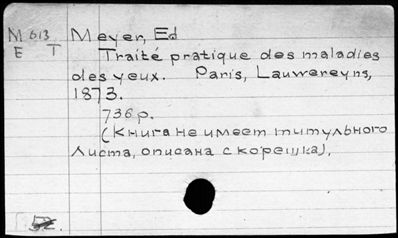 M 613 Meyer, Ed
E T Traité pratique des maladies
des yeux. Paris, Lauwereyns,
1873.
736 p.
(Книга не имеет титульного
листа, описана с корешка).
52.